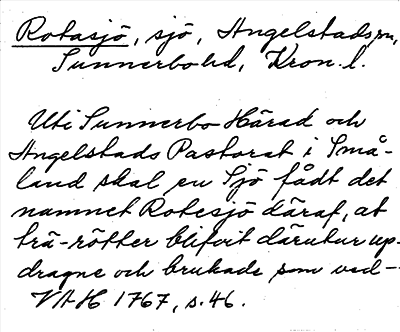 Rotasjö, sjö, Angelstads sn,
Sunnerbo hd, Kron. l.
Uti Sunnerbo Härad och
Angelstads Pastorat i Små-
land skal en Sjö fådt det
namnet Rotesjö däraf, at
trä-rötter blifvit därutur up-
dragne och brukade som ved -
VAH 1767, s. 46.